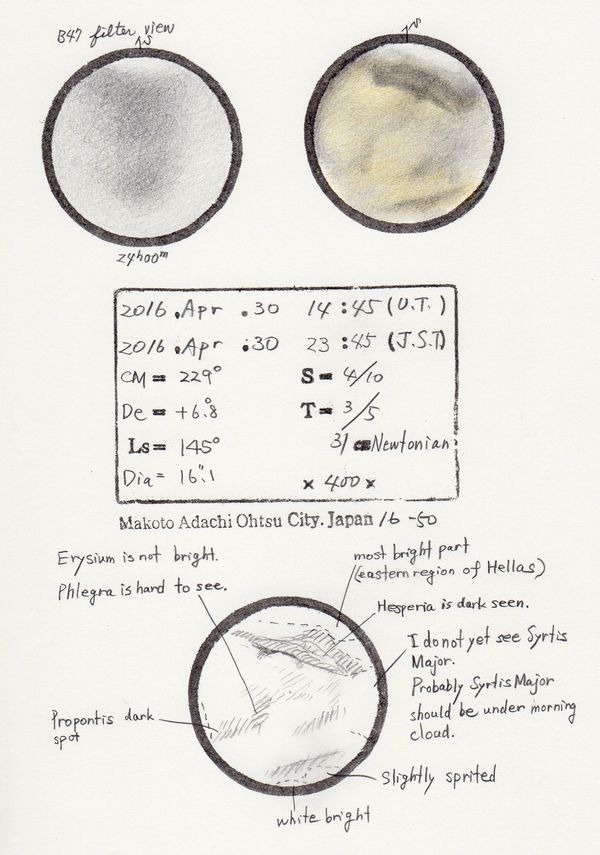 B47 filter view
S
S
24h00m
2016 . Apr . 30 14 : 45 (U.T.)
2016 . Apr . 30 23 : 45 (J.S.T)
CM = 229° S = 4/10
De = +6.°8 T = 3/5
Ls = 145° 31 cm Newtonian
Dia = 16".1 × 400 ×
Makoto Adachi Ohtsu City. Japan 16 -50
Erysium is not bright.
Phlegra is hard to see.
most bright part
(eastern region of Hellas)
Hesperia is dark seen.
I do not yet see Syrtis
Major.
Probably Syrtis Major
should be under morning
cloud.
Propontis dark
spot
Slightly sprited
white bright